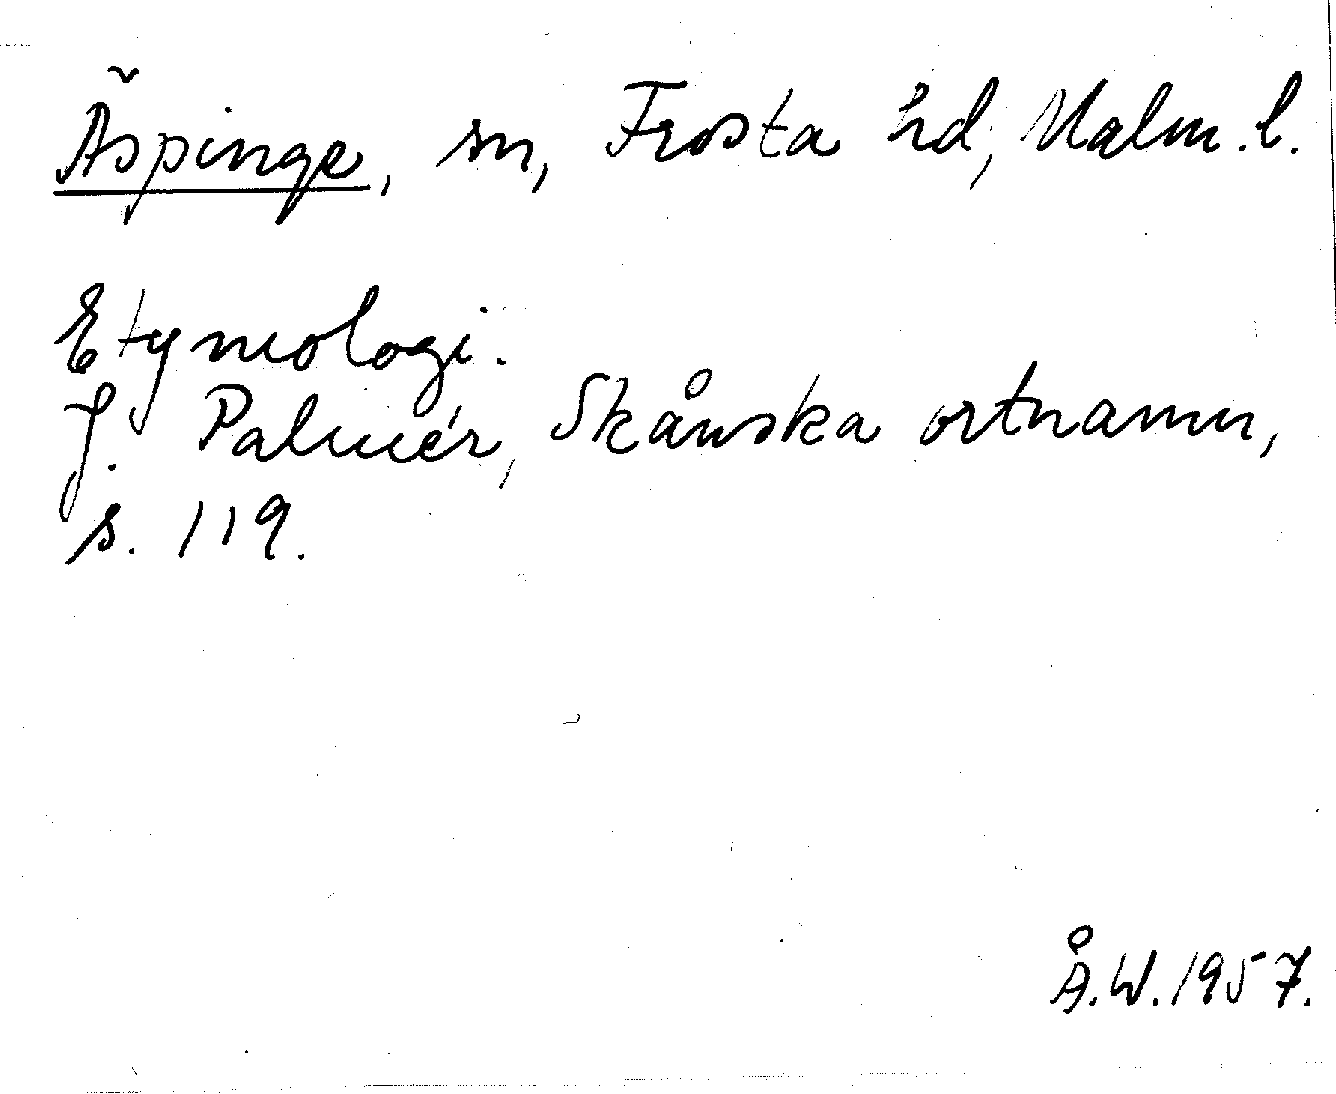 Äspinge, sn, Frosta hd, Malm. l.
Etymologi.
J. Palmér, Skånska ortnamn,
s. 119.
Å.W. 1957.